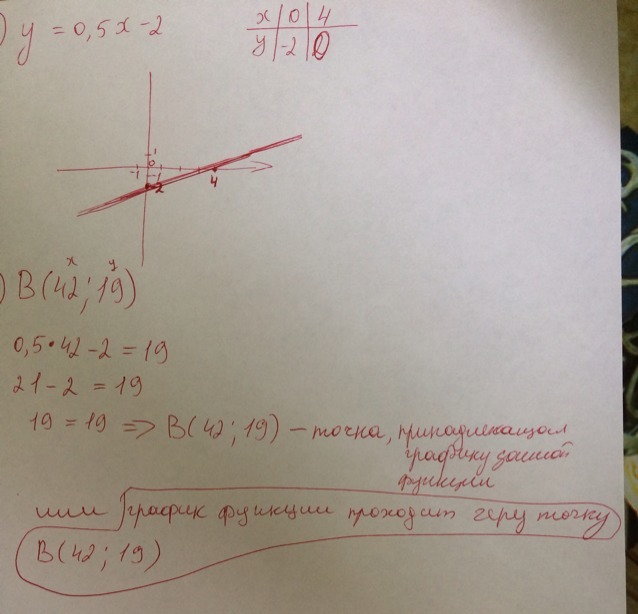 ) y = 0,5x - 2
x | 0 | 4
y | -2 | 0
1
-1 0
-1
-2 4
x y
) B(42; 19)
0,5 • 42 - 2 = 19
21 - 2 = 19
19 = 19 => B(42; 19) - точка, принадлежащая
графику данной
функции
или график функции проходит через точку
B(42; 19)